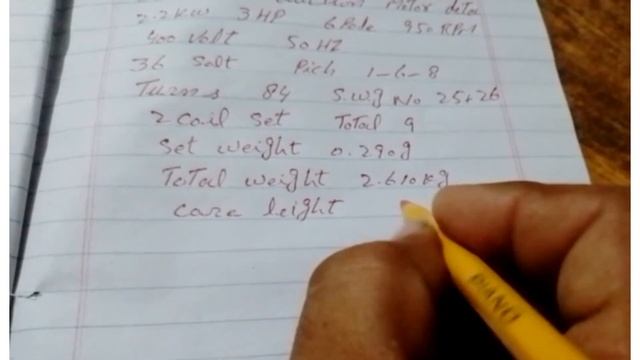 Motor
2.2KW 3HP 6 Pole 950 RPM
400 Volt 50HZ
36 Salt Pich 1-6-8
Turns 84 S.wg No 25+26
2 Coil Set Total 9
Set weight 0.290g
Total weight 2.610Kg
Care leight
PIANO